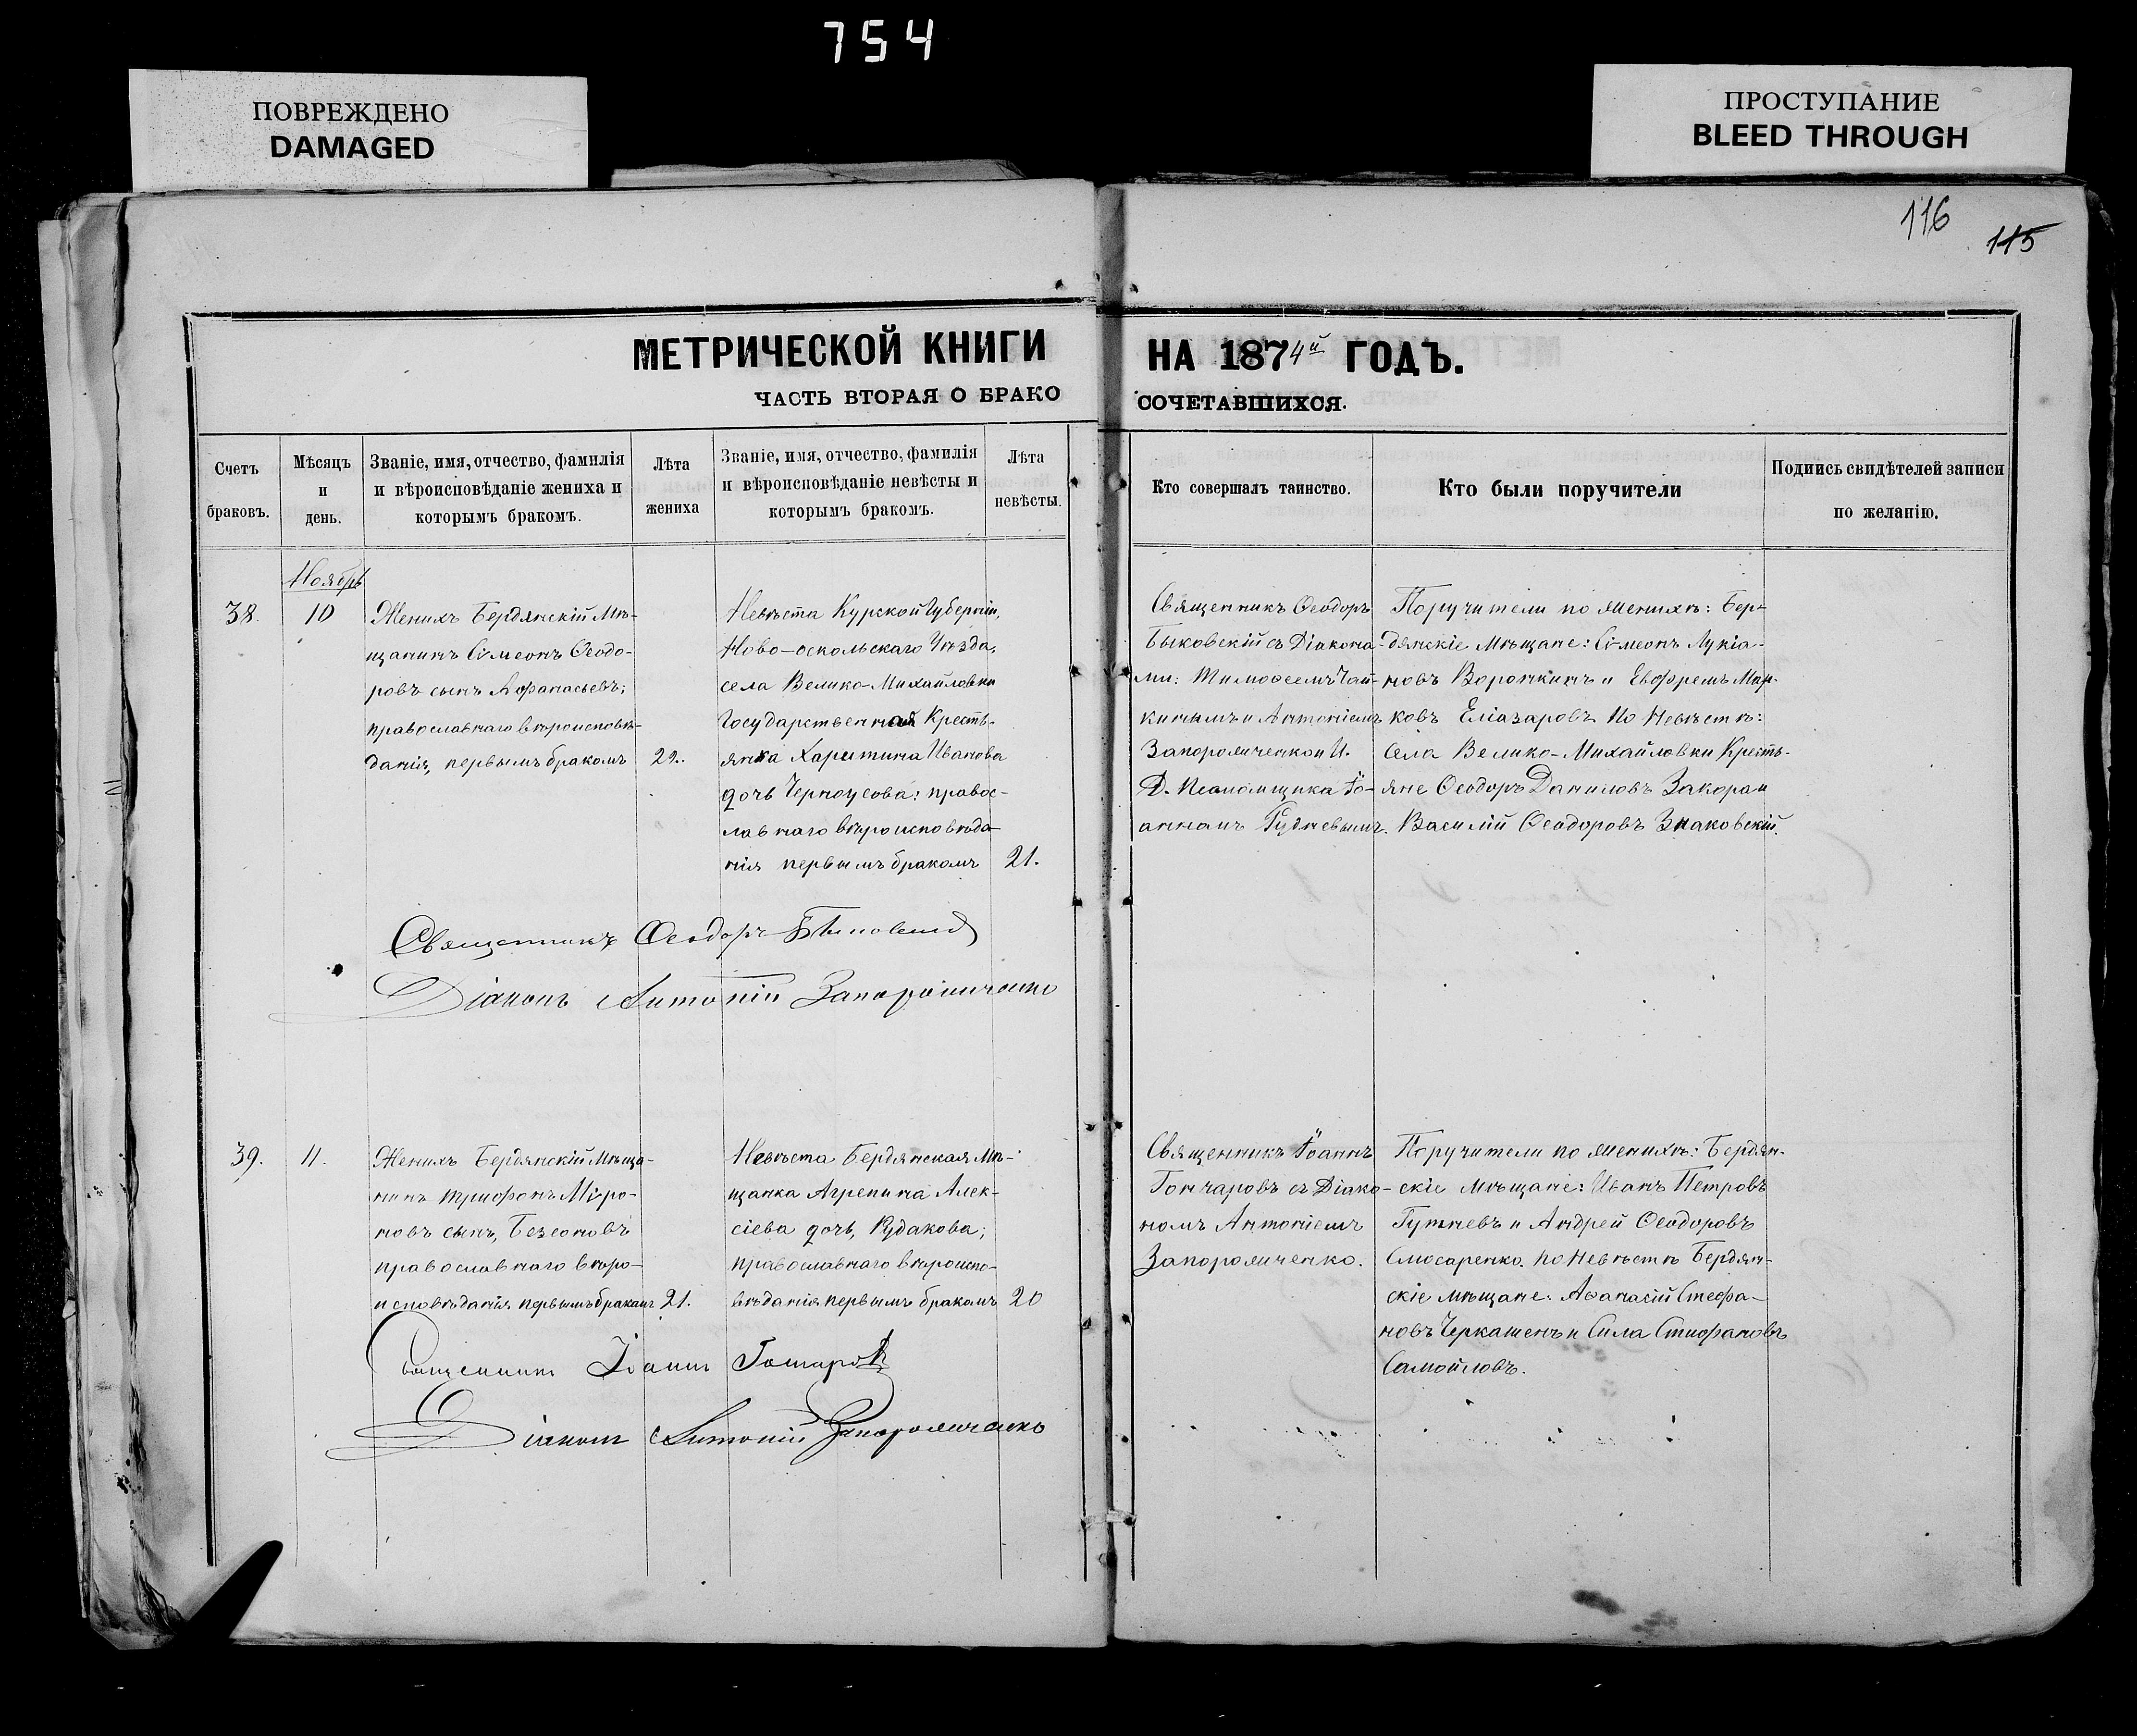 754
ПОВРЕЖДЕНО
DAMAGED
ПРОСТУПАНИЕ
BLEED THROUGH
116
115
МЕТРИЧЕСКОЙ КНИГИ
НА 1874й ГОДЪ.
ЧАСТЬ ВТОРАЯ О БРАКО
СОЧЕТАВШИХСЯ.
Счетъ
браковъ.
Мѣсяцъ
и
день.
Званіе, имя, отчество, фамилія
и вѣроисповѣданіе жениха и
которымъ бракомъ.
Лѣта
жениха
Званіе, имя, отчество, фамилія
и вѣроисповѣданіе невѣсты и
которымъ бракомъ.
Лѣта
невѣсты.
Кто совершалъ таинство.
Кто были поручители
Подпись свидѣтелей записи
по желанію.
Ноябрь
38.
10
Женихъ Бердянскій Мѣ-
щанинъ Сѵмеонъ Ѳеодо-
ровъ сынъ Аѳанасьевъ;
православнаго вѣроисповѣ-
данія, первымъ бракомъ
22.
Невѣста Курской Губерніи,
Ново-оскольскаго Уѣзда,
села Велико-Михайловки
Государственная Кресть-
янка Харитина Иванова
дочь Черноусова: правос-
лавнаго вѣроисповѣда-
нія первымъ бракомъ
21.
Священникъ Ѳеодоръ
Быковскій съ Діакона-
ми: Тимоѳеемъ Чай-
кинымъ и Антоніемъ
Запорожченкои И.
Д. Псаломщика Іо-
анномъ Гудневымъ.
Поручители по женихѣ: Бер-
дянскіе Мѣщане: Сѵмеонъ Лукіа-
новъ Воронкинъ и Евфремъ Мар-
ковъ Еліазаровъ По Невѣстѣ:
Села Велико-Михайловки Кресть-
яне Ѳеодоръ Даниловъ Закора и
Василій Ѳеодоровъ Знаковскій.
Священникъ Ѳеодоръ Быковский
Діаконъ Антоній Запорожченко
39.
11.
Женихъ Бердянскій Мѣща-
нинъ Трифонъ Мѵро-
новъ сынъ, Безсоновъ
православнаго вѣро-
исповѣданія первымъ бракомъ
21.
Невѣста Бердянская Мѣ-
щанка Агрепина Алек-
сіева дочь, Кудакова;
православнаго вѣроиспо-
вѣданія первымъ бракомъ
20
Священникъ Іоаннъ
Гончаровъ съ Діако-
номъ Антоніемъ
Запорожченко.
Поручители по женихѣ: Бердян-
скіе Мѣщане: Иванъ Петровъ
Гутневъ и Андрей Ѳеодоровъ
Слюсаренко. по Невѣстѣ Бердян-
скіе мѣщане: Аѳанасій Стефа-
новъ Черкашенъ и Сила Стифановъ
Самойловъ.
Священникъ Іоаннъ Гончаровъ
Діаконъ Антоній Запорожченко